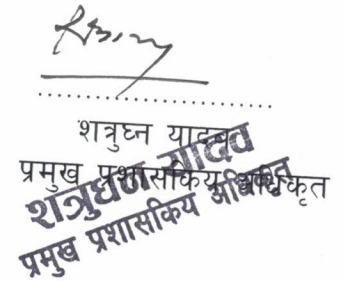 शत्रुघ्न यादव
प्रमुख प्रशासकिय अधिकृत
शत्रुघ्न यादव
प्रमुख प्रशासकिय अधिकृत